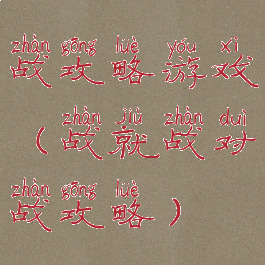 zhàn gōng lüè yóu xì
战攻略游戏
zhàn jiù zhàn duì
（战就战对
zhàn gōng lüè
战攻略）